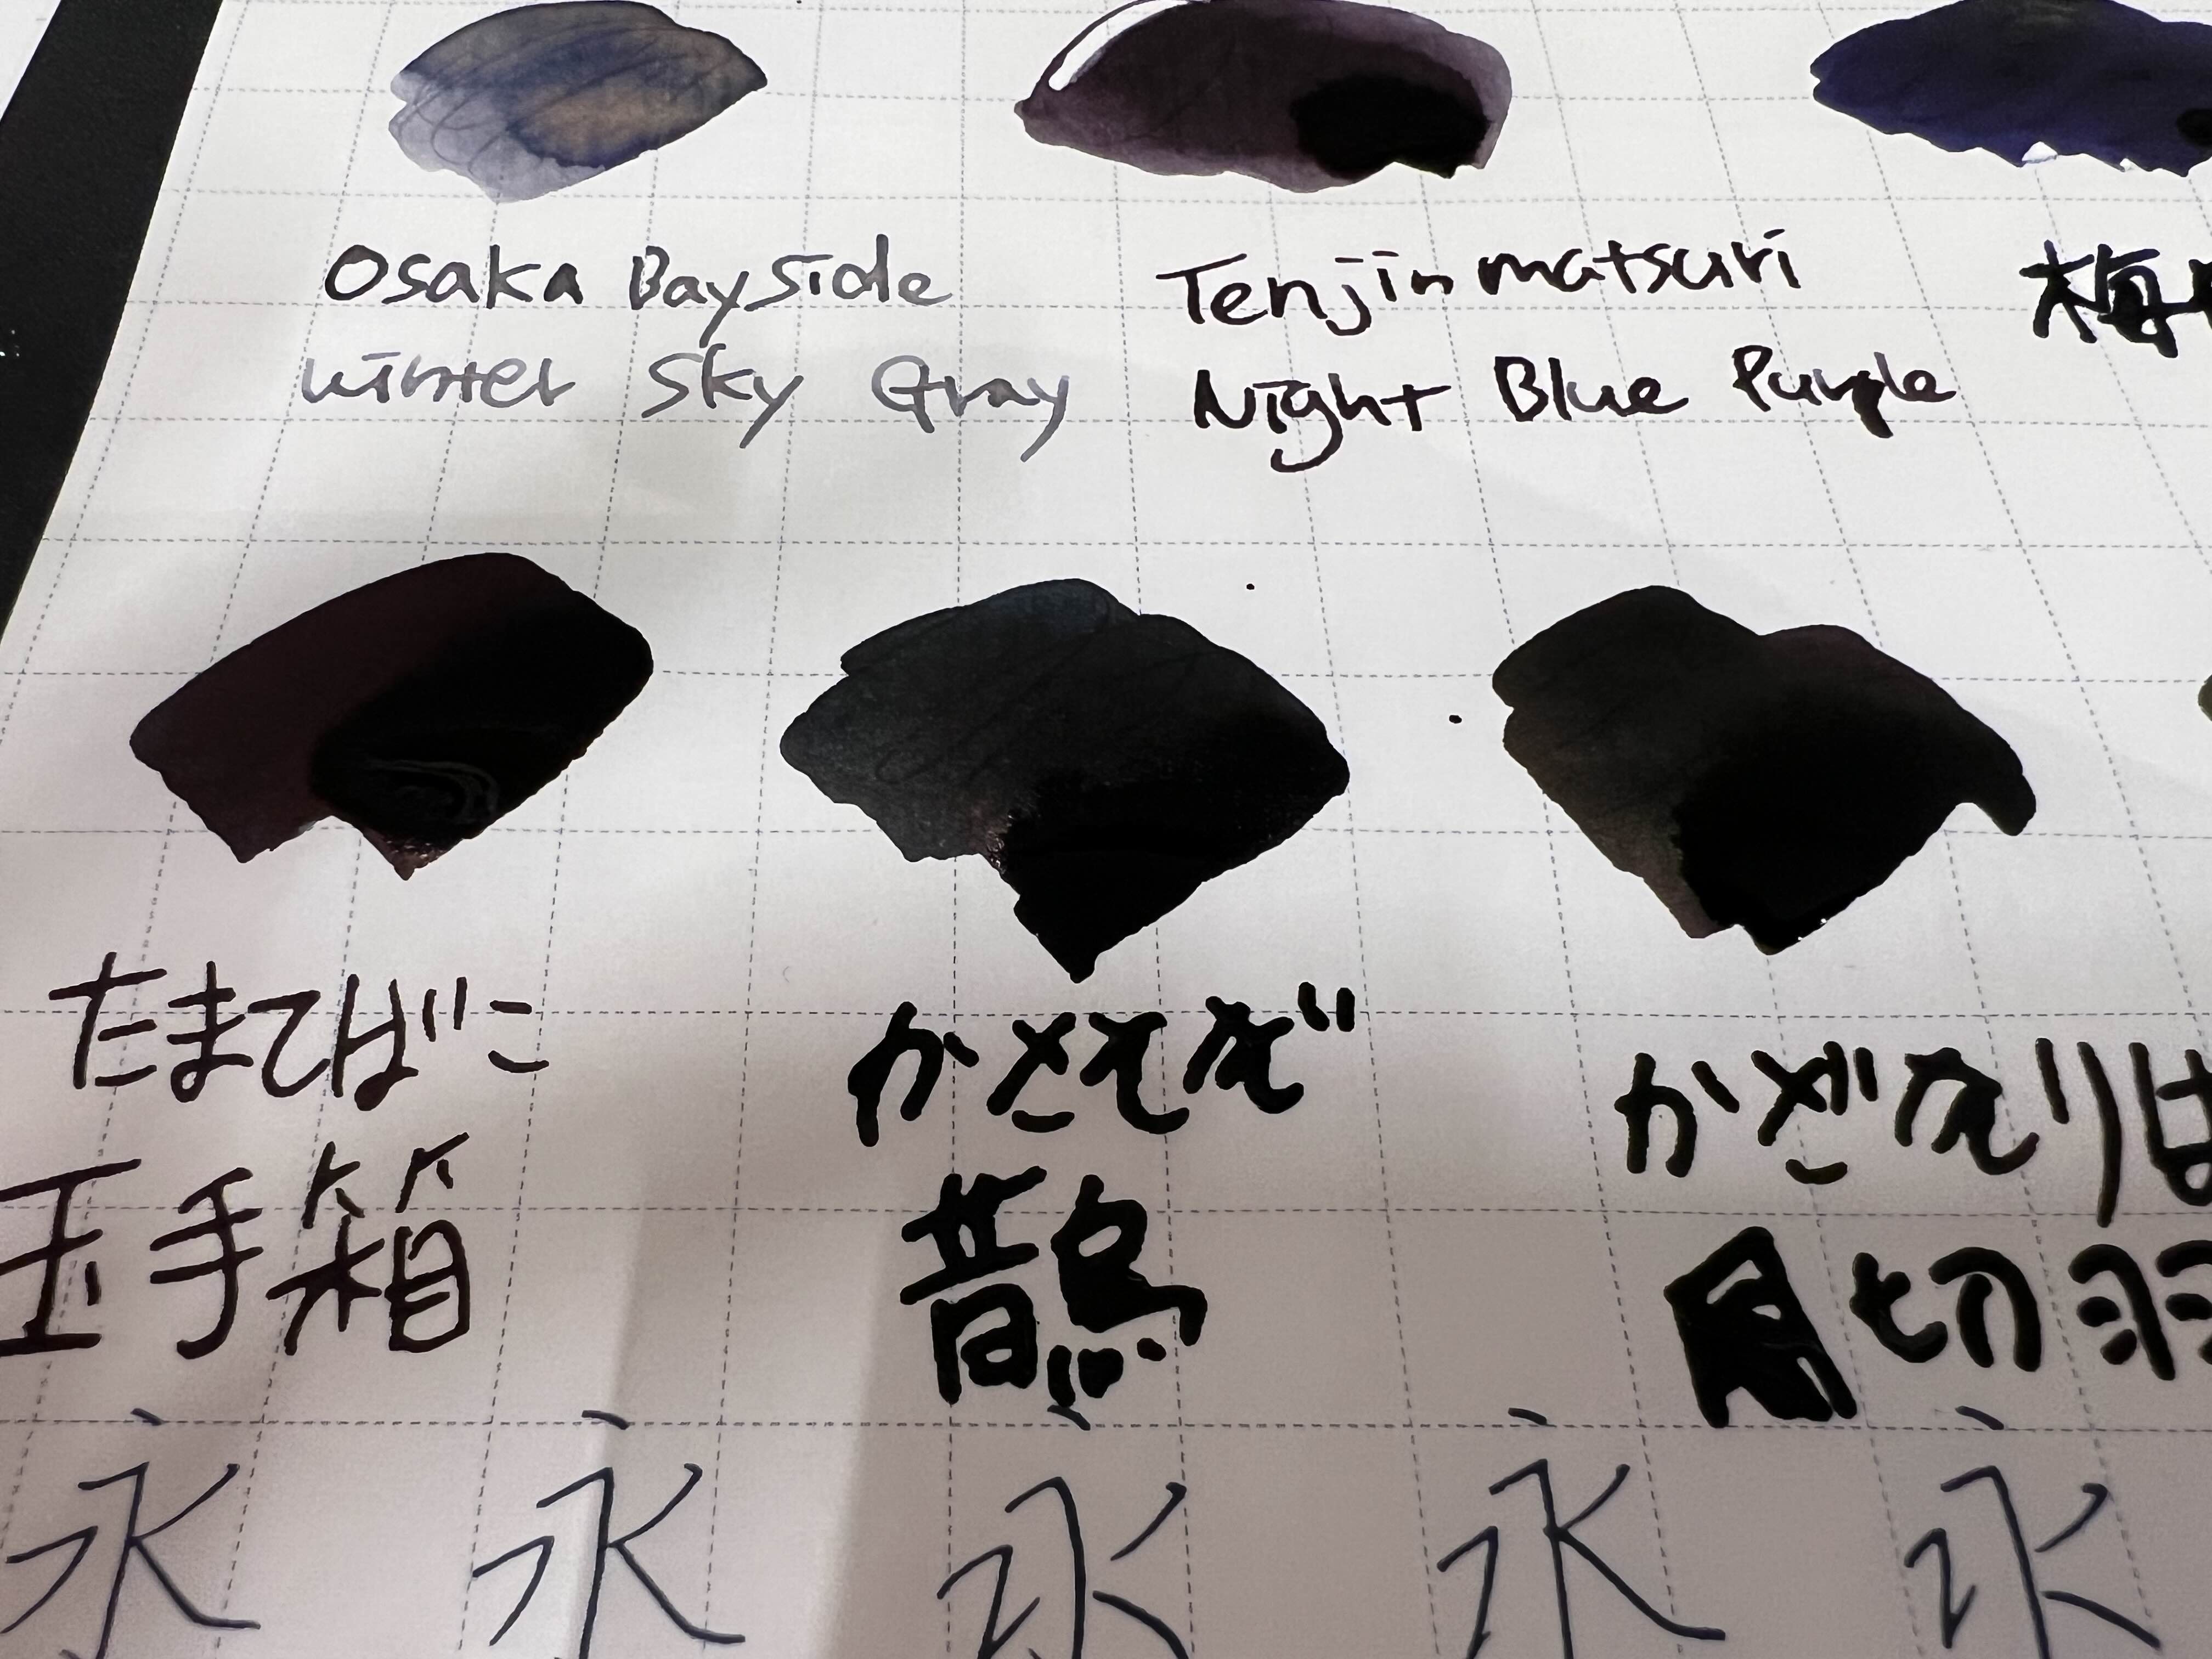 Osaka Bayside
Winter Sky Gray
Tenjin matsuri
Night Blue Purple
梅
たまてばこ
玉手箱
かささぎ
鵲
かざきりは
風切羽
永 永 永 永 永